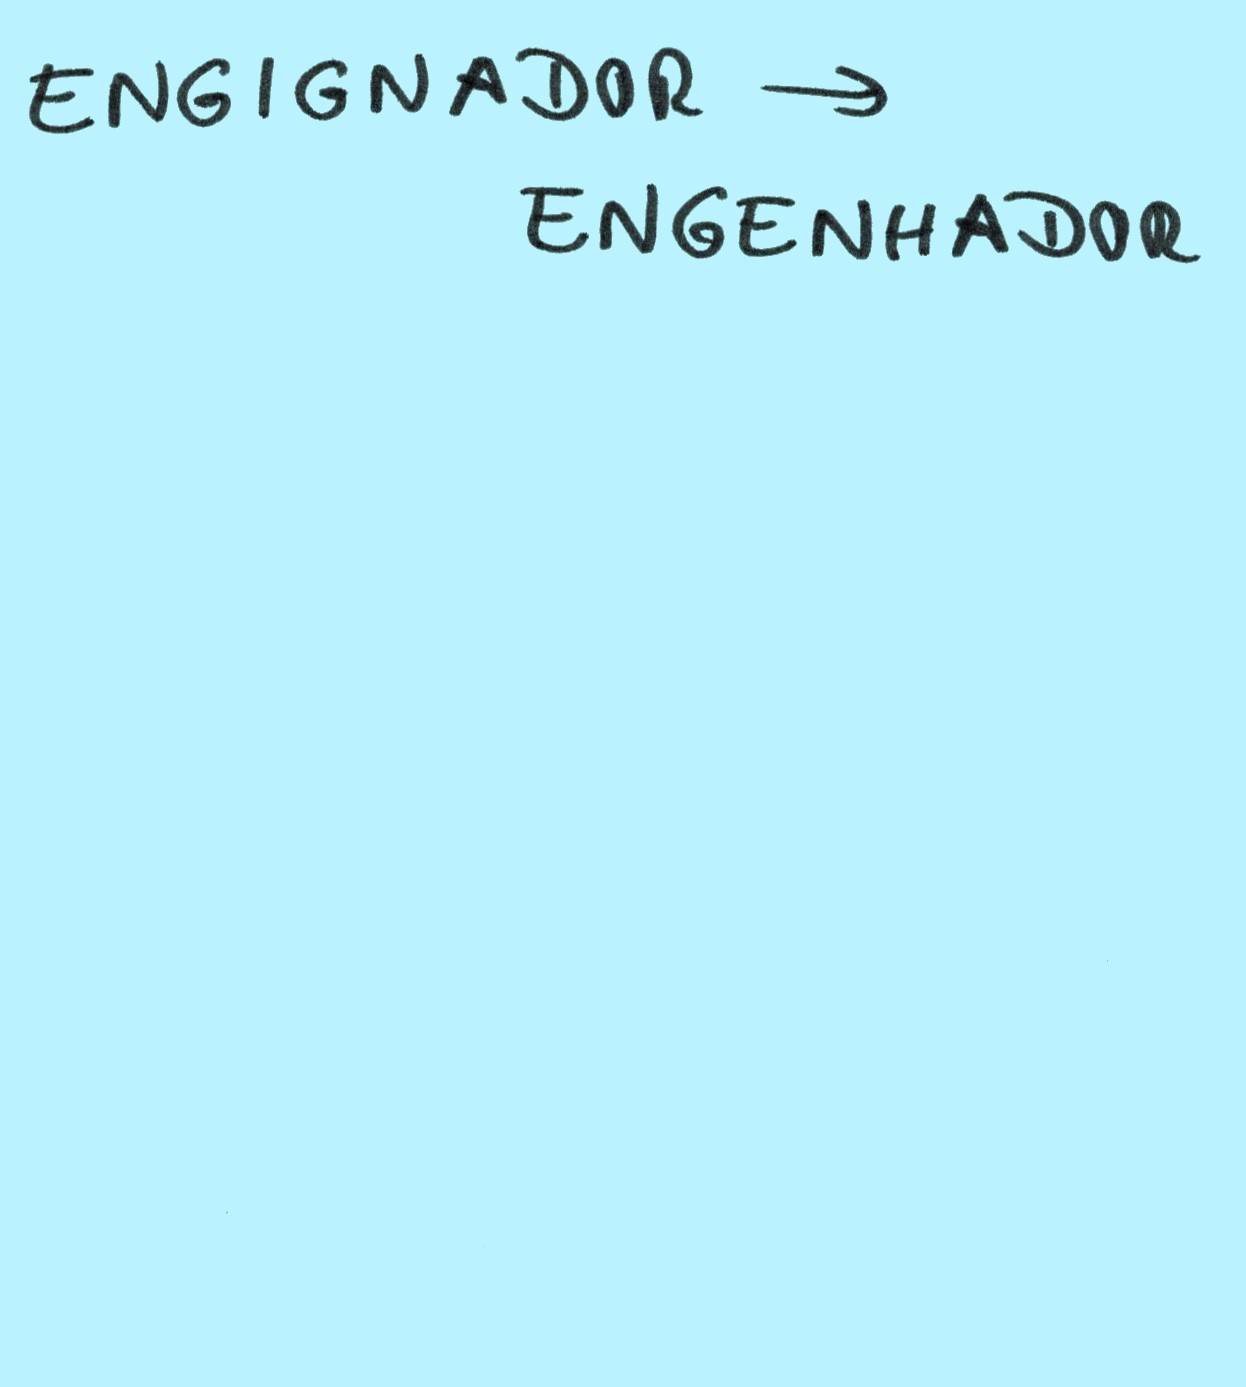 ENGIGNADOR →
ENGENHADOR